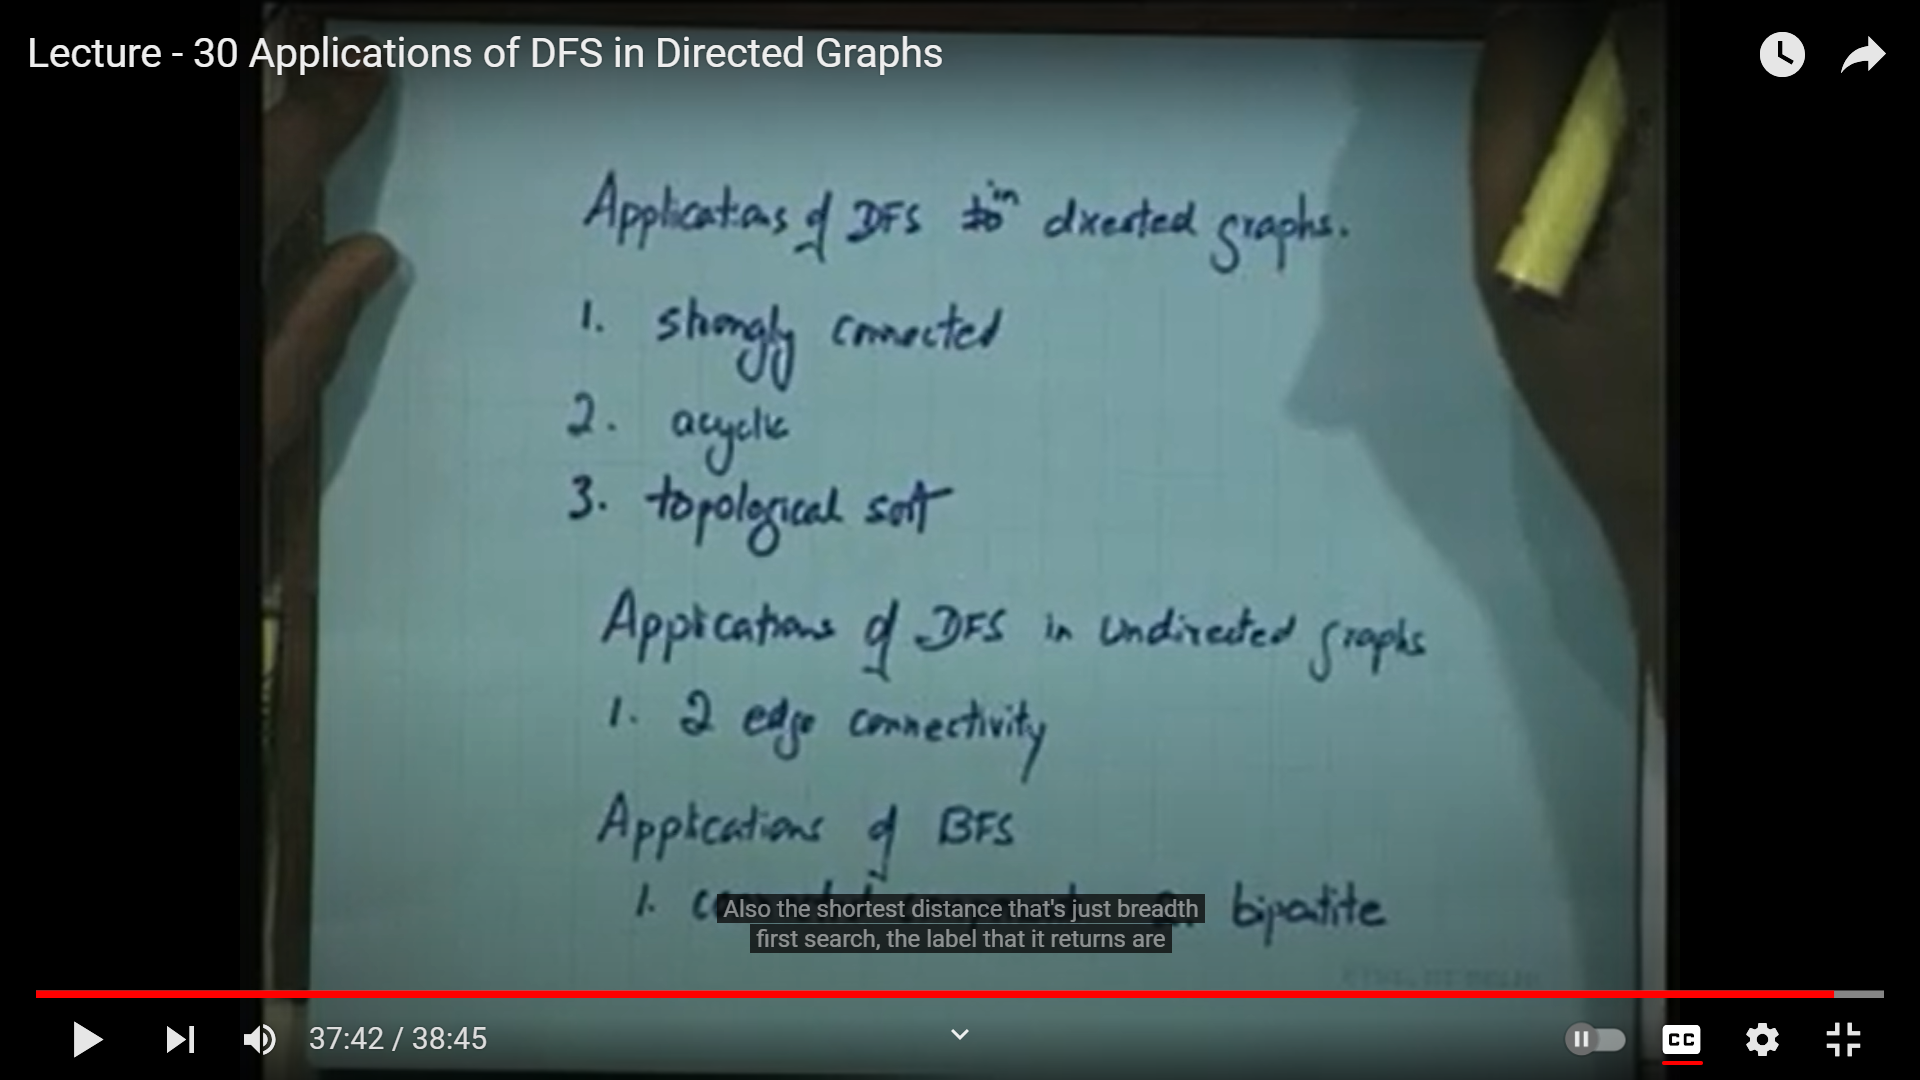 Lecture - 30 Applications of DFS in Directed Graphs
Applications of DFS to in directed graphs.
1. strongly connected
2. acyclic
3. topological sort
Applications of DFS in undirected graphs
1. 2 edge connectivity
Applications of BFS
1. bipatite
Also the shortest distance that's just breadth
first search, the label that it returns are
37:42 / 38:45
CC